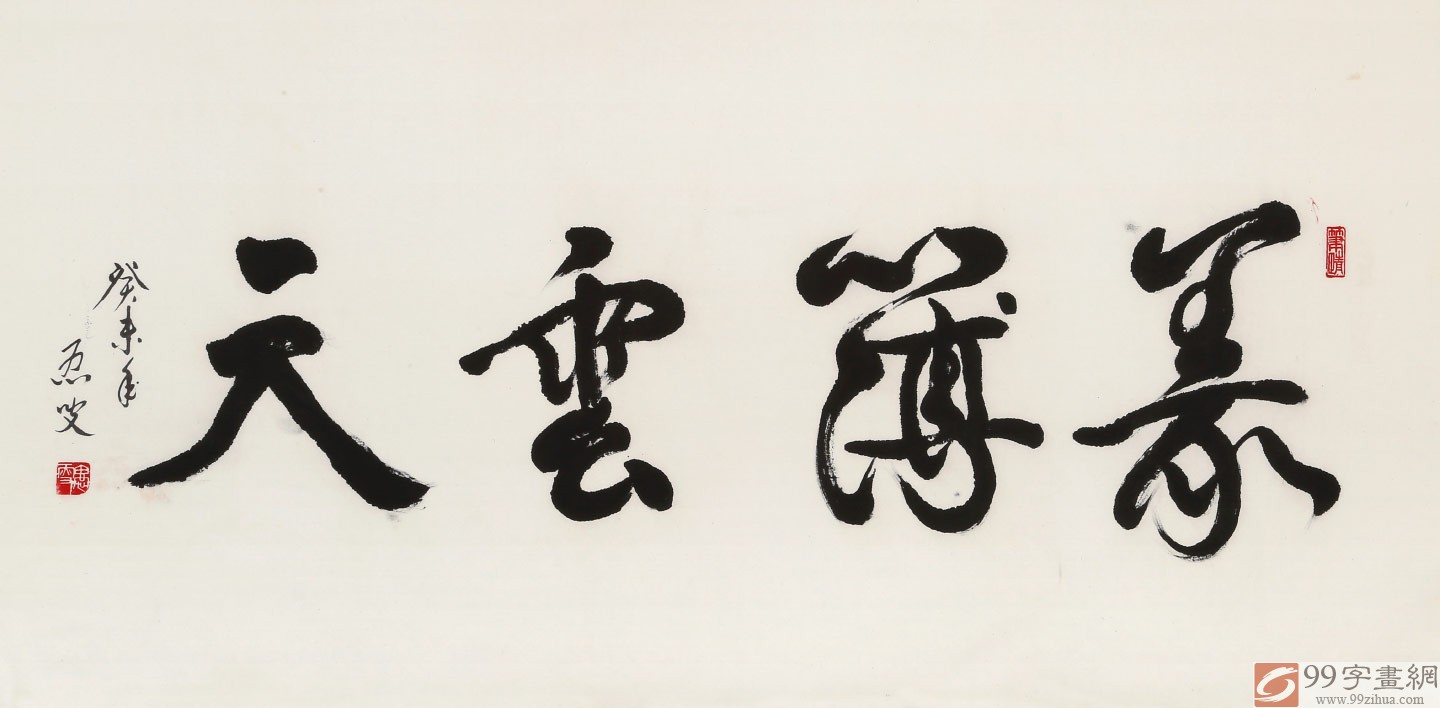 義薄雲天
癸未年
99字畫網
www.99zihua.com